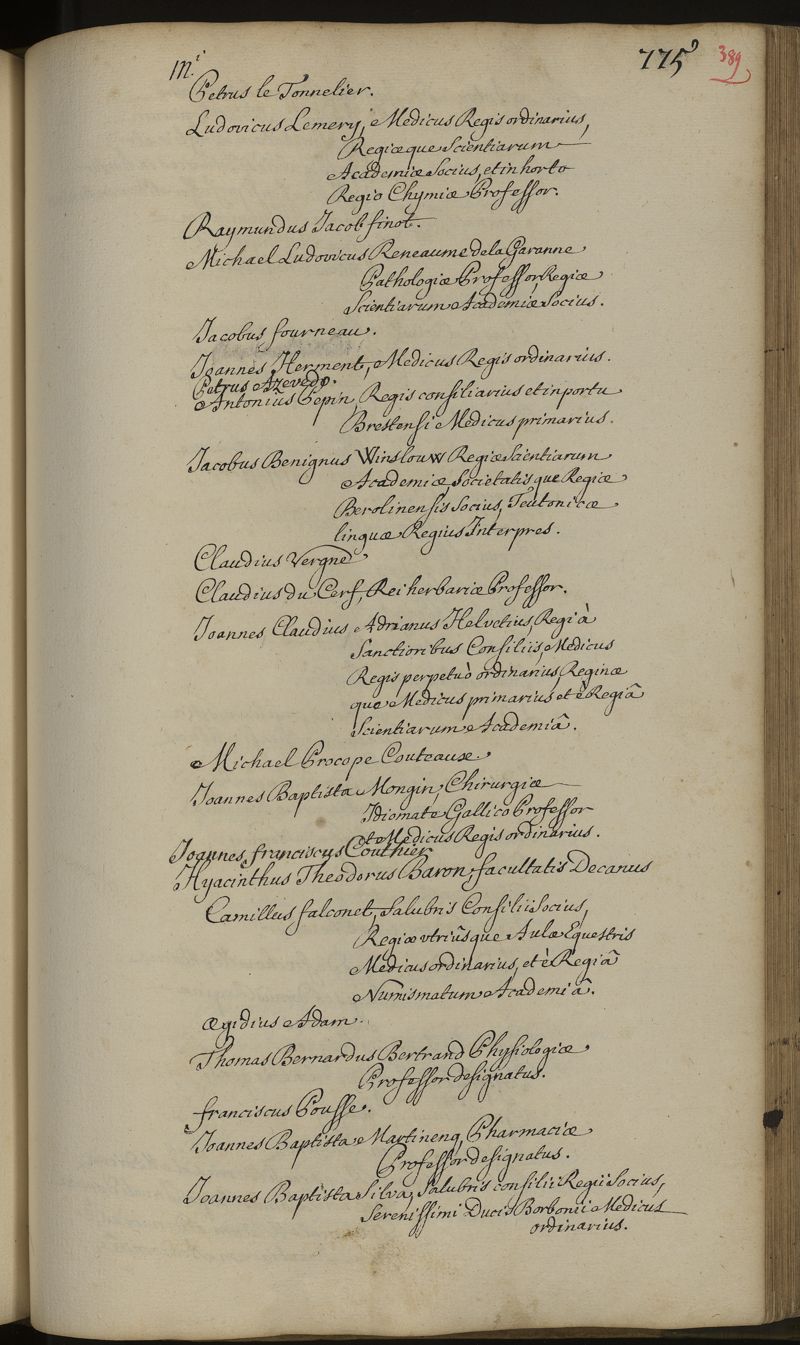 M.i 775 389
Petrus le Tonnelier.
Ludovicus Lemery, Medicus Regis ordinarius,
Regiæque Scientiarum
Academiæ Socius, et in horto
Regio Chymiæ Professor.
Raymundus Jacob finot.
Michael Ludovicus Reneaume de la Garanne
Pathologiæ Professor, Regiæ
Scientiarum Academiæ Socius.
Jacobus fourneau.
Joannes Herment, Medicus Regis ordinarius.
Petrus Azevedo.
Antonius Pepin, Regis consiliarius et in portu
Brestensi Medicus primarius.
Jacobus Benignus Winslouw Regiæ Scientiarum
Academiæ, Societatis que Regiæ
Berolinensis Socius, Teutonicæ
linguæ Regius Interpres.
Claudius Vergne
Claudius du Cerf, Rei herbariæ Professor.
Joannes Claudius Adrianus Helvetius, Regi à
Sanctioribus Consiliis, Medicus
Regis perpetuò ordinarius, Reginæ
que Medicus primarius, et è Regiâ
Scientiarum Academiâ.
Michael Procope Couteaux.
Joannes Baptista Mongin, Chirurgiæ
Idiomate Gallico Professor
et Medicus Regis ordinarius.
Joannes, franciscus Couthier
Hyacinthus Theodorus Baron, facultatis Decanus
Camillus falconet, Salubris Consilii Socius,
Regiæ utriûsque Aulæ Equestris
Medicus ordinarius, et è Regiâ
Numismatum Academiâ.
Ægidius Adam.
Thomas Bernardus Bertrand Physiologiæ
Professor designatus.
franciscus Pousse.
Joannes Baptista Martinenq, Pharmaciæ
Professor designatus.
Joannes Baptista Silva, Salubris consilii Regii Socius,
Serenissimi Ducis Borbonii Medicus
ordinarius.